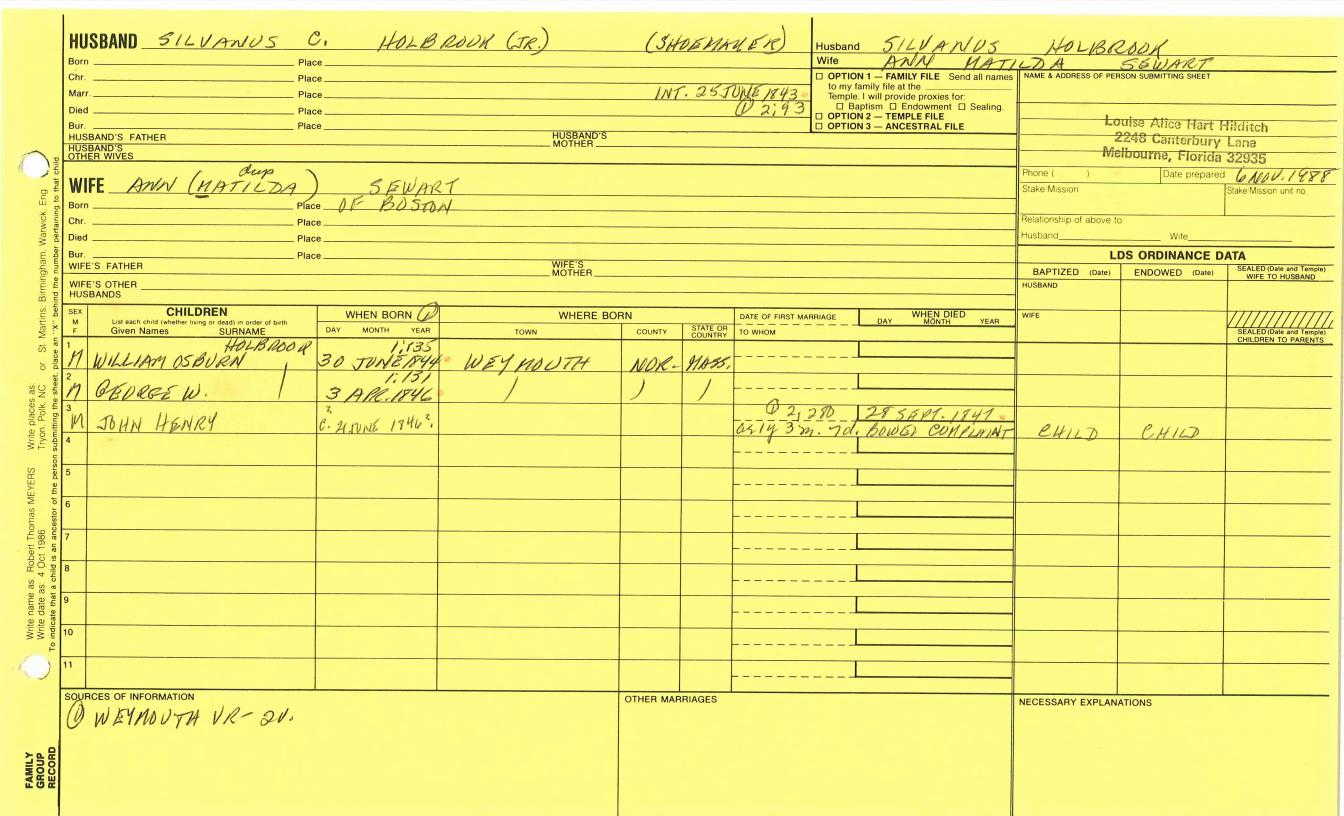 HUSBAND SILVANUS C. HOLBROOK (JR.) (SHOEMAKER)
Born Place
Chr. Place
Marr. Place INT. 25 JUNE 1843
Died Place ① 2;93
Bur. Place
HUSBAND'S FATHER HUSBAND'S MOTHER
HUSBAND'S OTHER WIVES
Husband SILVANUS HOLBROOK
Wife ANN MATILDA SEWART
☐ OPTION 1 — FAMILY FILE Send all names
to my family file at the
Temple. I will provide proxies for:
☐ Baptism ☐ Endowment ☐ Sealing.
☐ OPTION 2 — TEMPLE FILE
☐ OPTION 3 — ANCESTRAL FILE
NAME & ADDRESS OF PERSON SUBMITTING SHEET
Louise Alice Hart Hilditch
2248 Canterbury Lane
Melbourne, Florida 32935
Phone ( ) Date prepared 6 NOV. 1988
Stake Mission Stake Mission unit no.
Relationship of above to
Husband Wife
dup
WIFE ANN (MATILDA) SEWART
Born Place OF BOSTON
Chr. Place
Died Place
Bur. Place
WIFE'S FATHER WIFE'S MOTHER
WIFE'S OTHER HUSBANDS
LDS ORDINANCE DATA
BAPTIZED (Date) ENDOWED (Date) SEALED (Date and Temple) WIFE TO HUSBAND
HUSBAND
WIFE
SEALED (Date and Temple) CHILDREN TO PARENTS
SEX M F
CHILDREN
List each child (whether living or dead) in order of birth
Given Names SURNAME
WHEN BORN ①
DAY MONTH YEAR
WHERE BORN
TOWN COUNTY STATE OR COUNTRY
DATE OF FIRST MARRIAGE
TO WHOM
WHEN DIED
DAY MONTH YEAR
1 HOLBROOK 1;135
M WILLIAM OSBURN 30 JUNE 1844 WEYMOUTH NOR- MASS.
2 1;131
M GEORGE W. 3 APR. 1846
3 ? ① 2,280 28 SEPT. 1847
M JOHN HENRY C. 21 JUNE 1846? as 1y 3m. 7d. BOWEL COMPLAINT CHILD CHILD
4
5
6
7
8
9
10
11
SOURCES OF INFORMATION
① WEYMOUTH VR- 2V.
OTHER MARRIAGES
NECESSARY EXPLANATIONS
Write name as Robert Thomas MEYERS Write places as Tryon, Polk, NC or St Martins, Birmingham, Warwick, Eng
Write date as 4 Oct 1986
To indicate that a child is an ancestor of the person submitting the sheet, place an "X" behind the number pertaining to that child
FAMILY
GROUP
RECORD